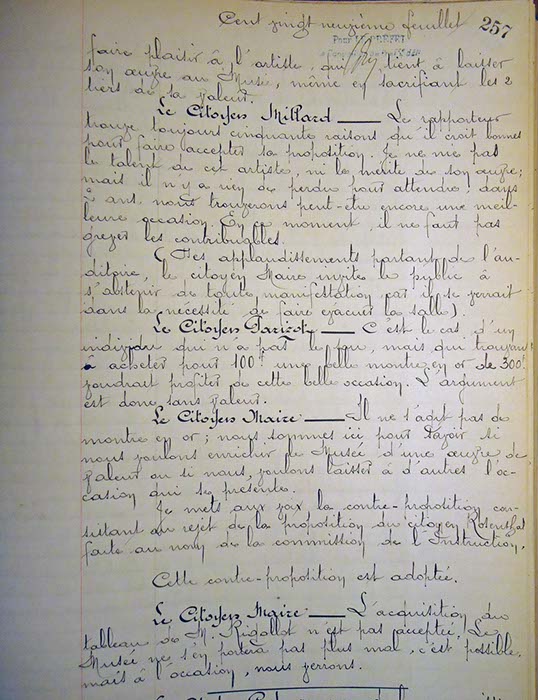 Cent vingt neuvième feuillet 257
Pour LE PREFET
faire plaisir à l'artiste, qui tient à laisser
son œuvre au Musée, même en sacrifiant les 2
tiers de sa valeur.
Le Citoyen Millard — Le rapporteur
trouve toujours cinquante raisons qu'il croit bonnes
pour faire accepter sa proposition. Je ne nie pas
le talent de cet artiste, ni le mérite de son œuvre;
mais il n'y a rien de perdu pour attendre; dans
2 ans nous trouverons peut-être encore une meil-
leure occasion. En ce moment, il ne faut pas
grever les contribuables.
(Des applaudissements partant de l'au-
ditoire, le citoyen Maire invite le public à
s'abstenir de toute manifestation car il se verrait
dans la nécessité de faire évacuer la salle).
Le Citoyen — C'est le cas d'un
individu qui n'a pas le sou, mais qui trouvant
à acheter pour 100f une belle montre en or de 300f
voudrait profiter de cette belle occasion. L'argument
est donc sans valeur.
Le Citoyen Maire — Il ne s'agit pas de
montre en or; nous sommes ici pour savoir si
nous voulons enrichir le Musée d'une œuvre de
valeur ou si nous voulons laisser à d'autres l'oc-
casion qui se présente.
Je mets aux voix la contre-proposition con-
sistant au rejet de la proposition du citoyen Rosenthal
faite au nom de la commission de l'Instruction.
Cette contre-proposition est adoptée.
Le Citoyen Maire — L'acquisition du
tableau de M. Rigollot n'est pas acceptée. Le
Musée ne s'en portera pas plus mal, c'est possible,
mais à l'occasion, nous verrons.